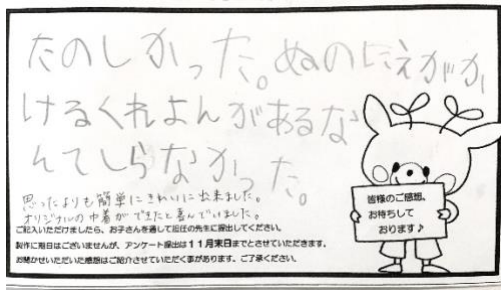 たのしかった。ぬのにえがか
けるくれよんがあるな
んてしらなかった。
思ったよりも簡単にきれいに出来ました。
オリジナルの巾着ができたと喜んでいました。
ご記入いただけましたら、お子さんを通して担任の先生に提出してください。
製作に期日はございませんが、アンケート提出は11月末日までとさせていただきます。
お聞かせいただいた感想はご紹介させていただく事があります。ご了承ください。
皆様のご感想、
お待ちして
おります♪